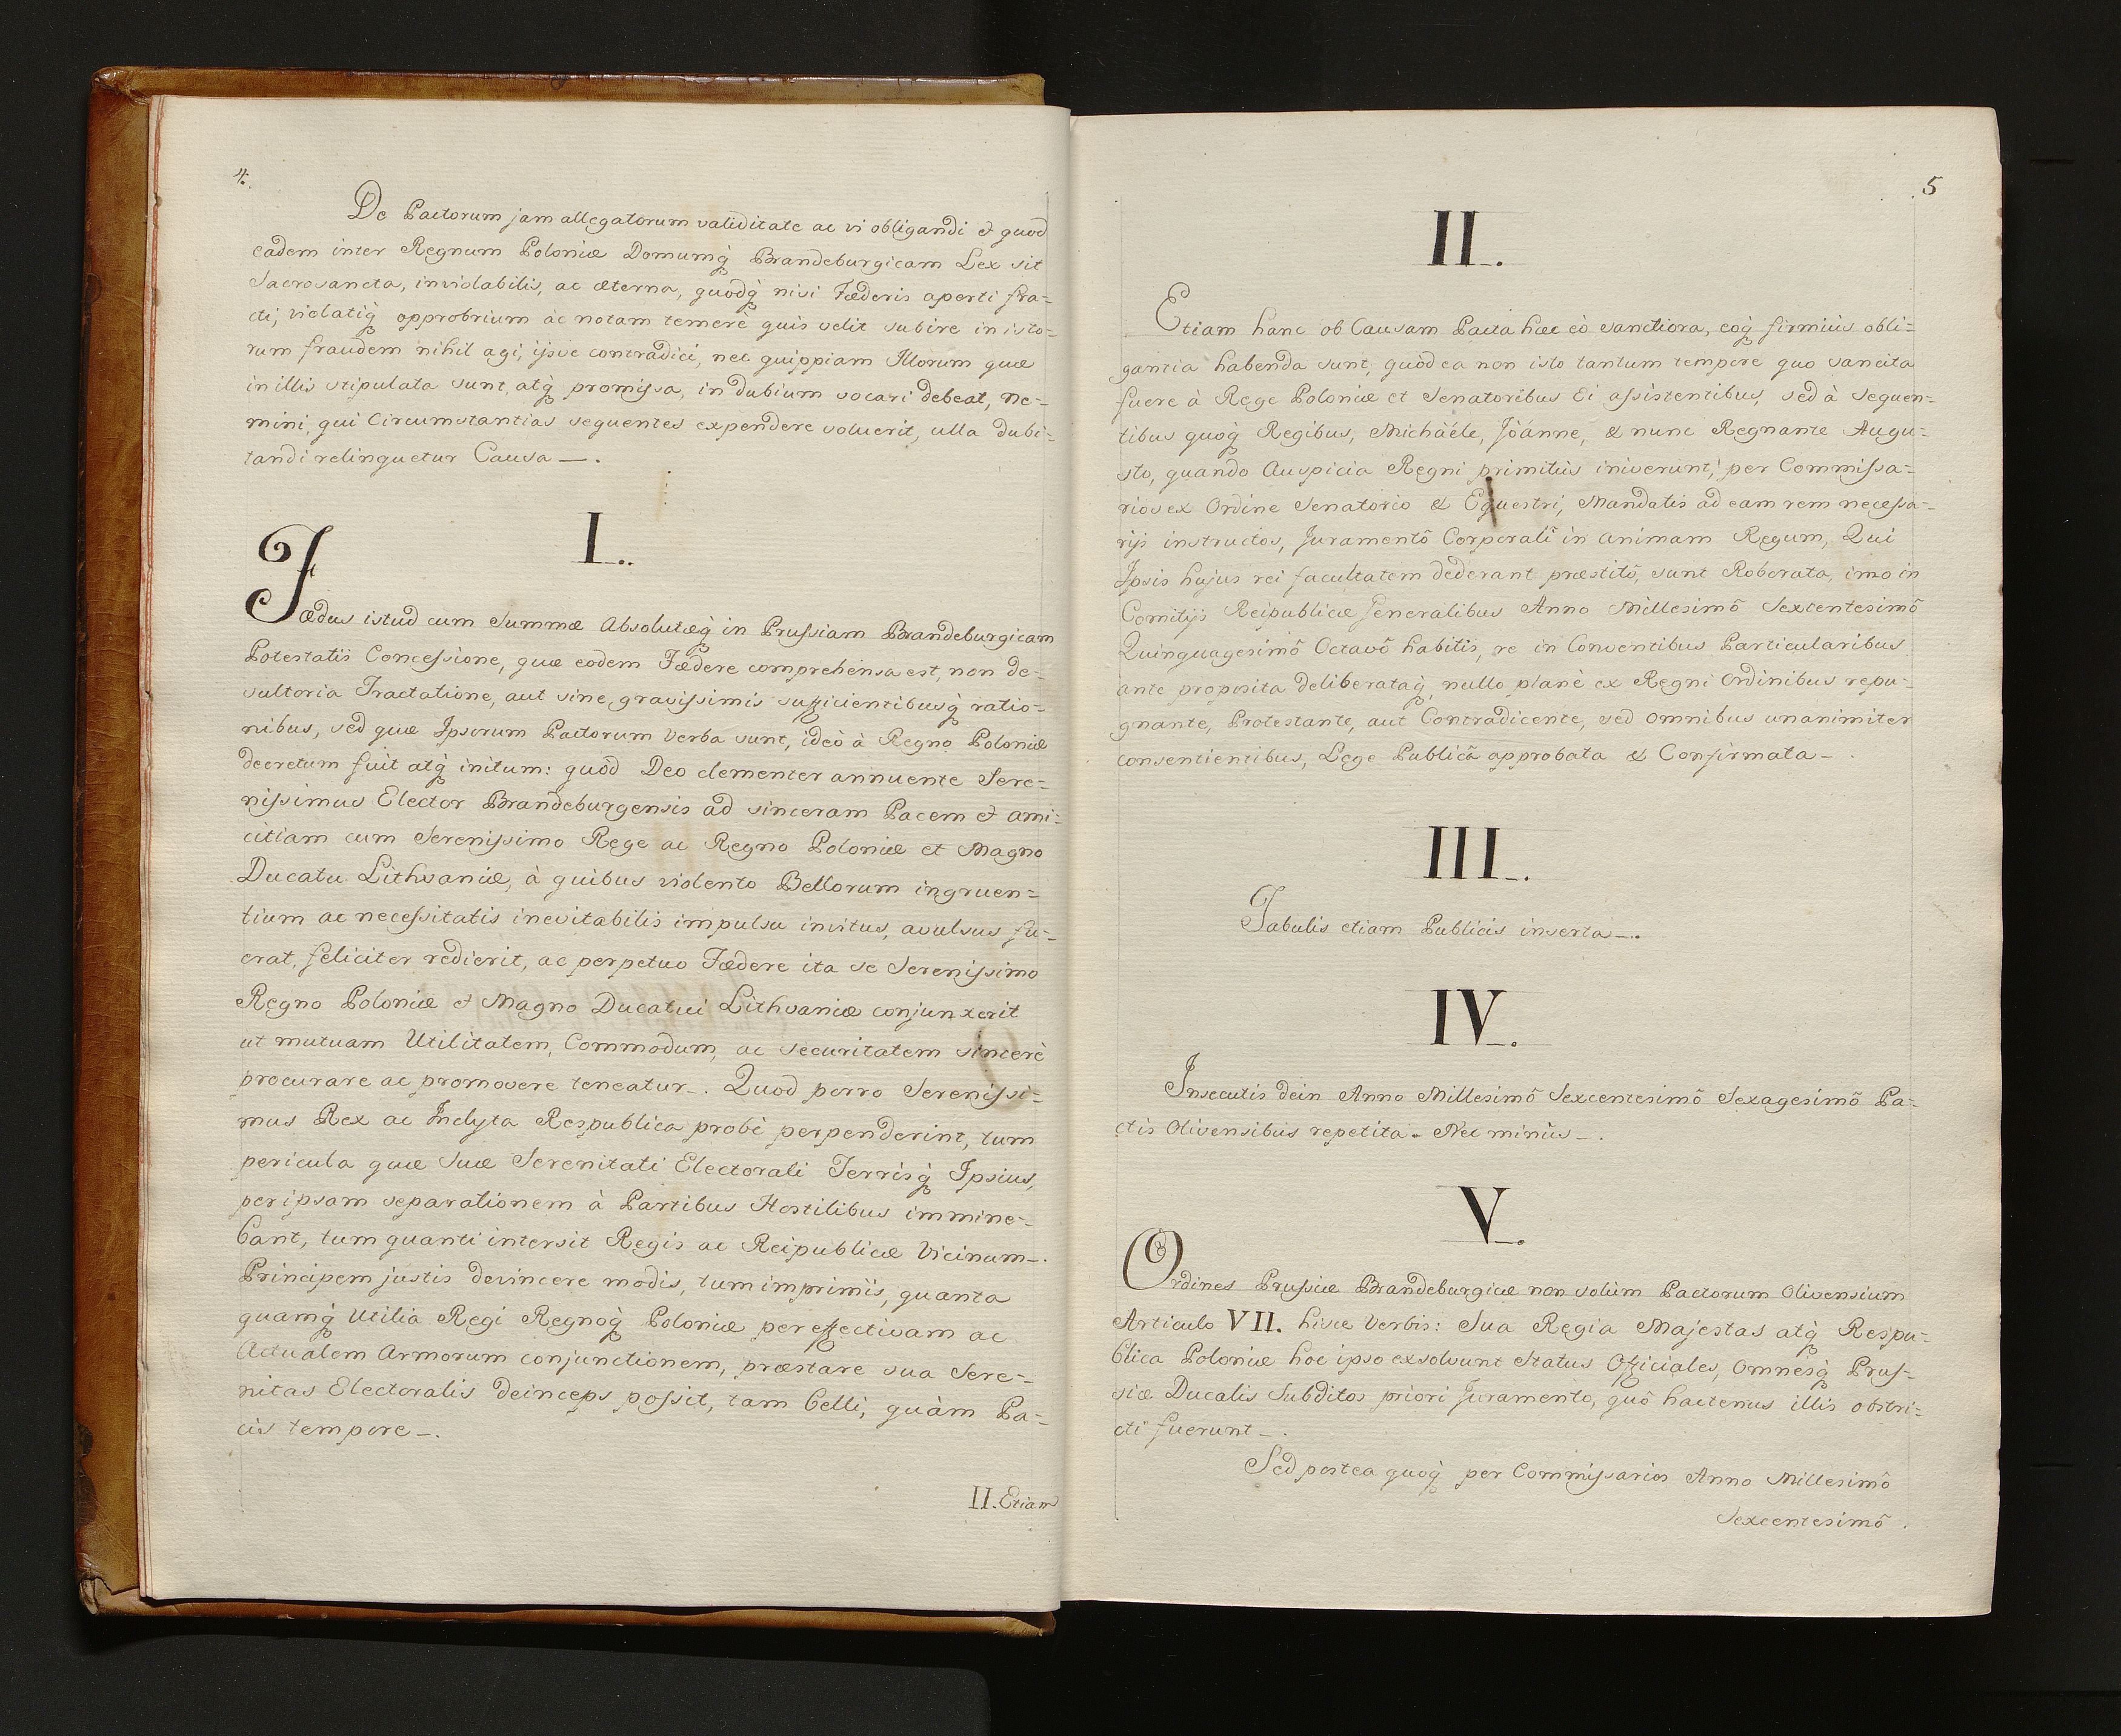 4.
De Pactorum jam allegatorum validitate ac vi obligandi et quod
eadem inter Regnum Poloniæ Domumq́ Brandeburgicam Lex sit
Sacrosancta, inviolabilis, ac æterna, quodq́ nisi Fœderis aperti fra=
cti, violatiq́ opprobrium ac notam temerè quis velit subire in isto=
rum fraudem nihil agi, ijsve contradici, nec quippiam Illorum quæ
in illis stipulata sunt, atq́ promissa, in dubium vocari debeat, ne=
mini, qui Circumstantias sequentes expendere voluerit, ulla dubi=
tandi relinquetur Causa_.
I..
Fœdus istud cum Summæ Absolutæq́ in Prussiam Brandeburgicam
Potestatis Concessione, quæ eodem Fœdere comprehensa est, non de=
sultoria Tractatione, aut sine gravissimis sufficientibusq́ ratio=
nibus, sed quæ Ipsorum Pactorum Verba sunt, ideò à Regno Poloniæ
decretum fuit atq́ initum: quod Deo clementer annuente Sere=
nissimus Elector Brandeburgensis ad sinceram Pacem et ami=
citiam cum Serenissimo Rege ac Regno Poloniæ et Magno
Ducatu Lithvaniæ, à quibus violento Bellorum ingruen=
tium ac necessitatis inevitabilis impulsu invitus, avulsus fu=
erat, feliciter redierit, ac perpetuo Fœdere ita se Serenissimo
Regno Poloniæ et Magno Ducatui Lithvaniæ conjunxerit
ut mutuam Utilitatem, Commodum, ac securitatem sincerè
procurare ac promovere teneatur_. Quod porro Serenissi=
mus Rex ac Inclyta Respublica probè perpenderint, tum
pericula quæ Suæ Serenitati Electorali Terrisq́ Ipsius,
per ipsam separationem à Partibus Hostilibus immine=
bant, tum quanti intersit Regis ac Reipublicæ Vicinum_.
Principem justis devincere modis, tum imprimis, quanta
quamq́ Utilia Regi Regnoq́ Poloniæ per effectivam ac
Actualem Armorum conjunctionem, præstare sua Sere=
nitas Electoralis deinceps possit, tam belli, quàm Pa=
cis tempore_.
II. Etiam
5
II_.
Etiam hanc ob Causam Pacta hæc eò sanctiora, eoq́ firmiùs obli=
gantia habenda sunt, quòd ea non isto tantum tempore quo sancita
fuere à Rege Poloniæ et Senatoribus Ei assistentibus, sed à sequen=
tibus quoq́ Regibus, Michäéle, Jöánne, & nunc Regnante Augu=
sto, quando Auspicia Regni primitùs iniverunt, per Commissa=
rios ex Ordine Senatorio & Equestri, Mandatis ad eam rem necessa=
rijs instructos, Juramentô Corporali in animam Regum, Qui
Ipsis hujus rei facultatem dederant præstitô, sunt Roborata, imo in
Comitijs Reipublicæ Generalibus Anno Millesimô Sexcentesimô
Quinquagesimô Octavô habitis, re in Conventibus Particularibus
ante proposita deliberataq́, nullo planè ex Regni Ordinibus repu=
gnante, Protestante, aut Contradicente, sed omnibus unanimiter
consentientibus, Lege Publicâ approbata & Confirmata_.
III_.
Tabulis etiam Publicis inserta_.
IV_.
Insecutis dein Anno Millesimô Sexcentesimô Sexagesimô Pa=
ctis Olivensibus repetita. Nec minùs_.
V_.
Ordines Prussiæ Brandeburgicæ non solùm Pactorum Olivensium
Articulo VII. hisce Verbis: Sua Regia Majestas atq́ Respu=
blica Poloniæ hoc ipso exsolvunt Status Officiales, Omnesq́ Prus=
siæ Ducalis Subditos priori Juramento, quô hactenus illis obstri=
cti fuerunt_.
Sed postea quoq́ per Commissarios Anno Millesimô
Sexcentesimô.